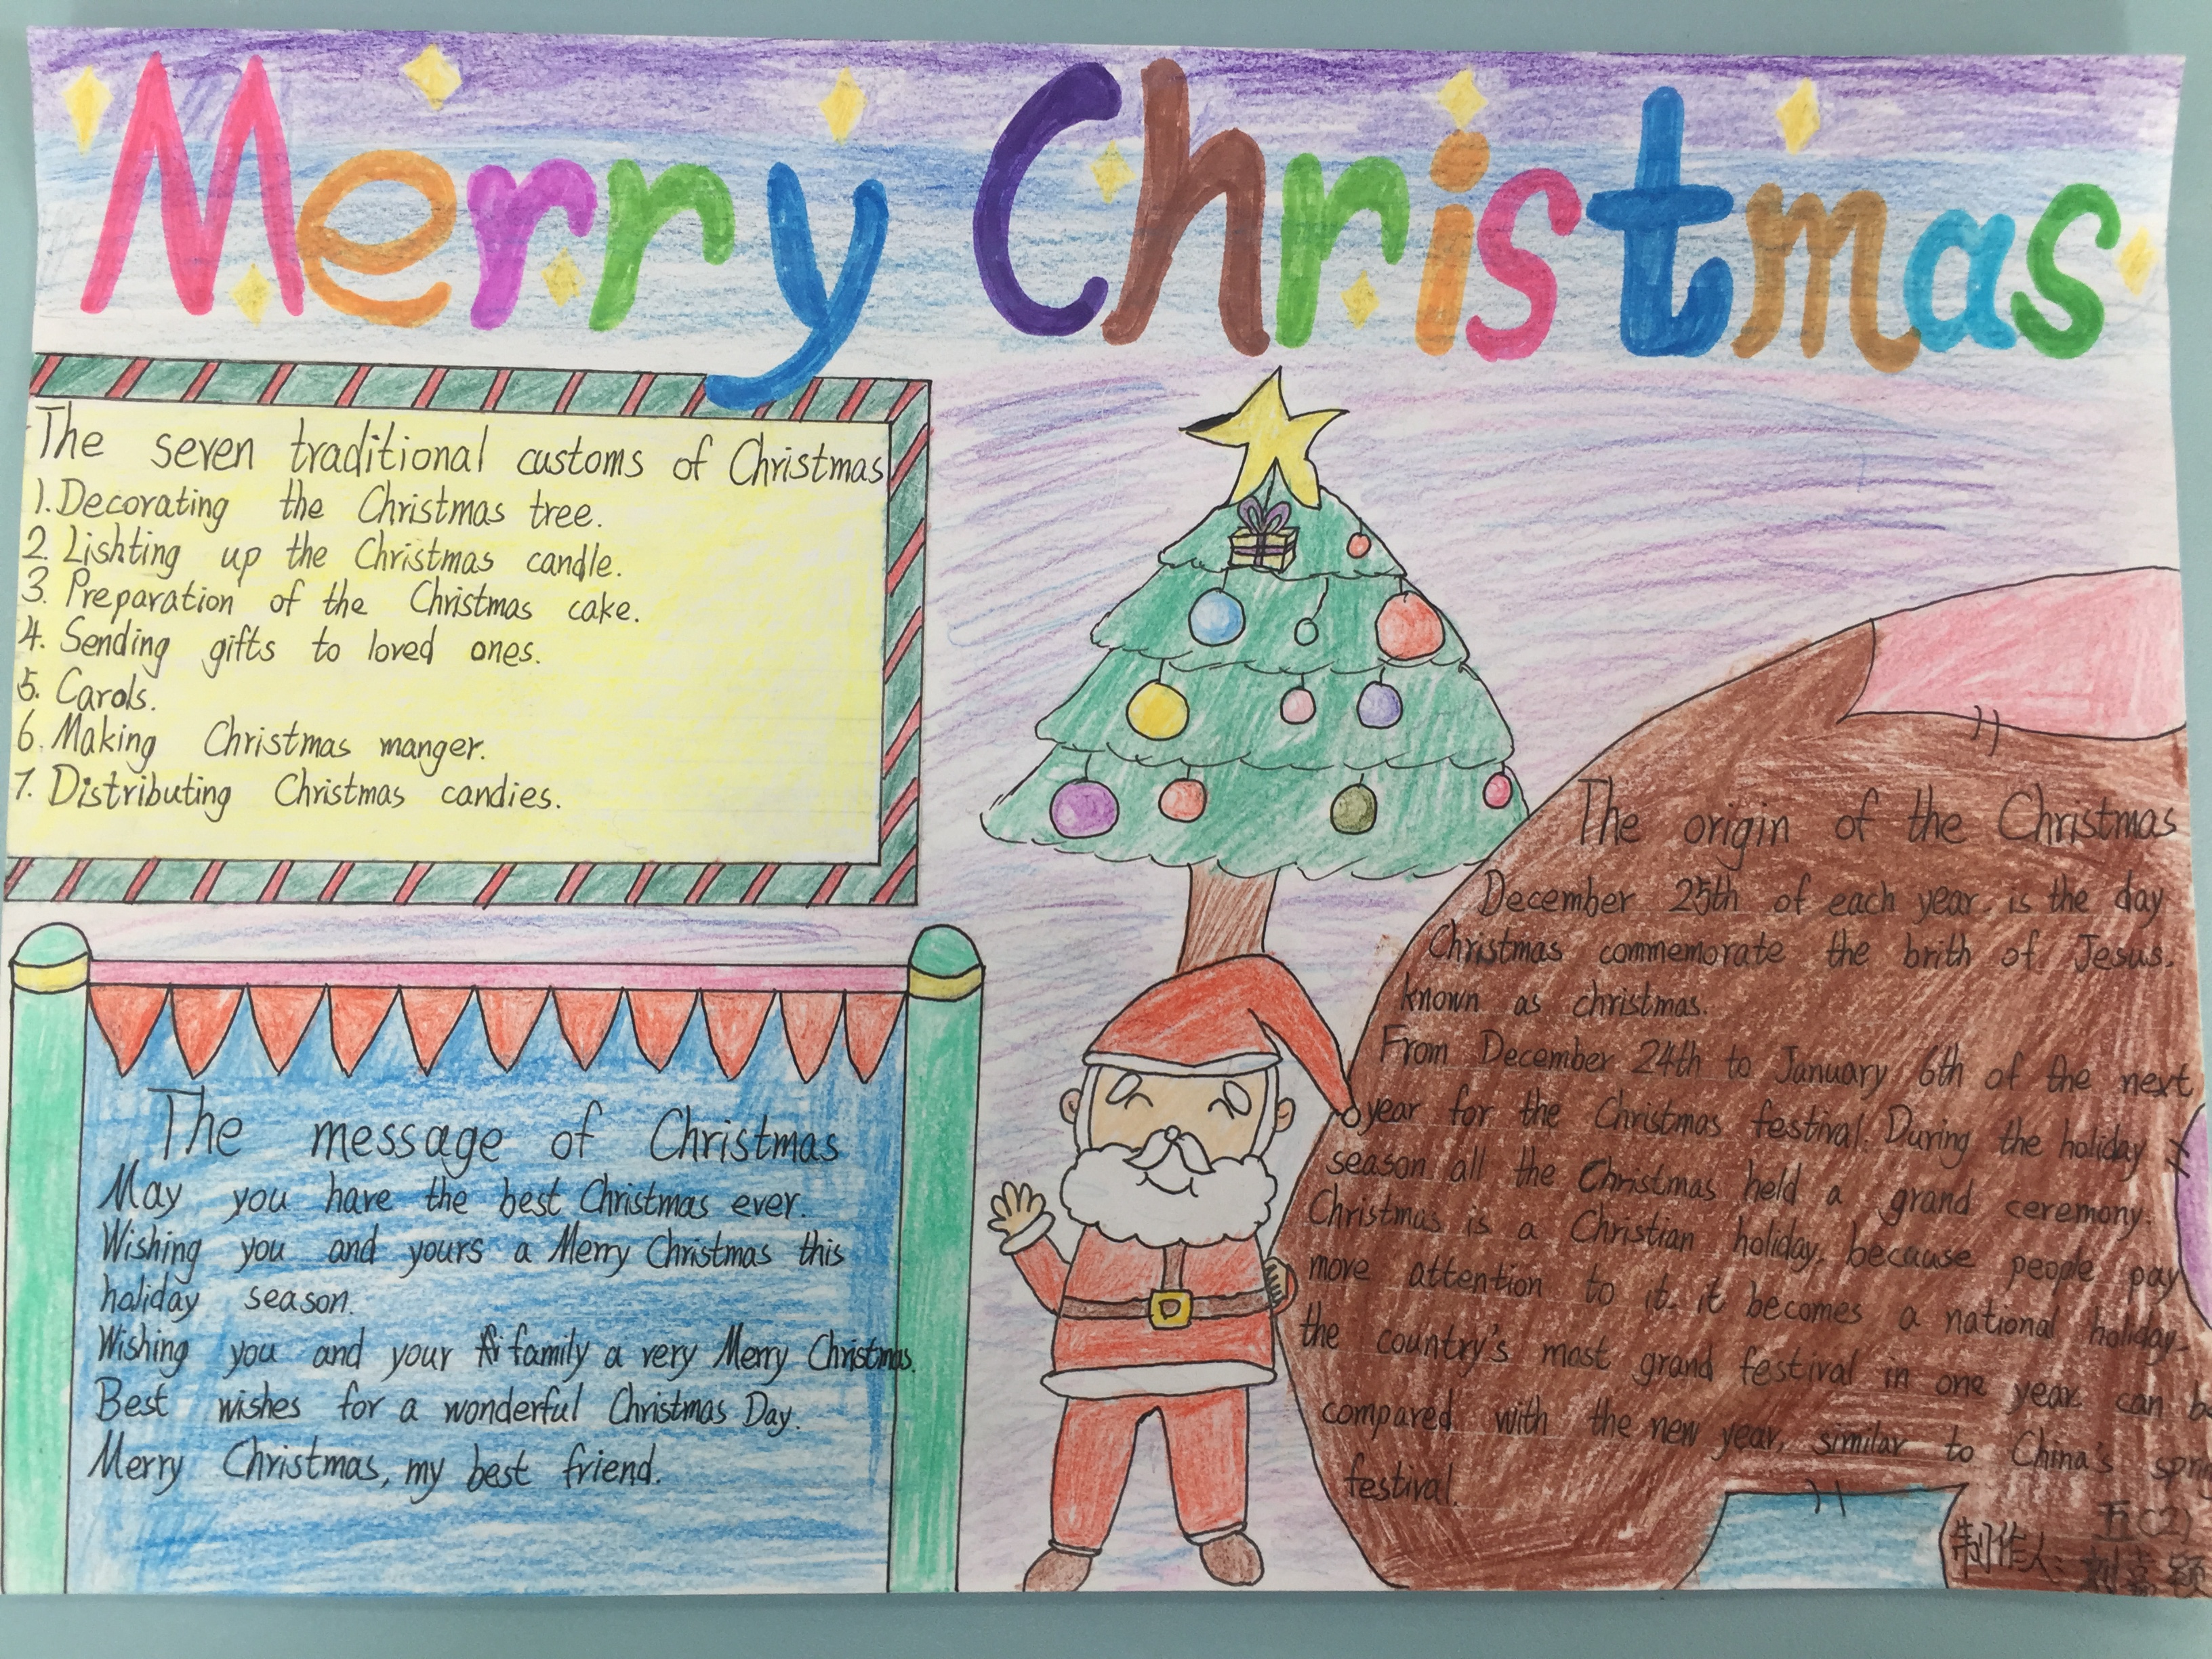 Merry Christmas
The seven traditional customs of Christmas
1. Decorating the Christmas tree.
2. Lishting up the Christmas candle.
3. Preparation of the Christmas cake.
4. Sending gifts to loved ones.
5. Carols.
6. Making Christmas manger.
7. Distributing Christmas candies.
The message of Christmas
May you have the best Christmas ever.
Wishing you and yours a Merry Christmas this
holiday season.
Wishing you and your family a very Merry Christmas.
Best wishes for a wonderful Christmas Day.
Merry Christmas, my best friend.
The origin of the Christmas
December 25th of each year. is the day
Christmas commemorate the brith of Jesus.
known as christmas.
From December 24th to January 6th of the next
year for the Christmas festival. During the holiday
season. all the Christmas held a grand ceremony.
Christmas is a Christian holiday. because people pay
more attention to it. it becomes a national holiday.
the country's most grand festival in one year. can be
compared with the new year, similar to China's
festival.
五(2)
制作人:刘嘉颖